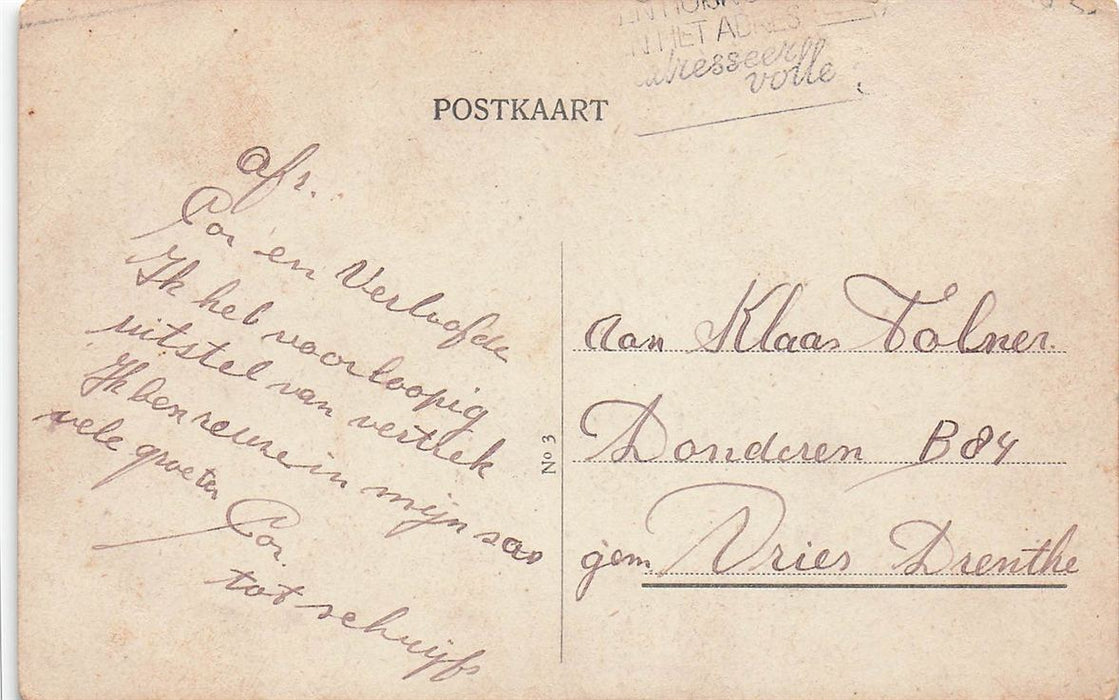 EN HET ADRES
adresseer
volle
POSTKAART
afz.
Cor en Verloofde
Ik heb voorloopig
uitstel van vertrek
Ik ben reuze in mijn sas
vele groeten
Cor.
tot schrijfs
No 3
Aan Klaas Tolner.
Donderen B84
gem Vries Drenthe